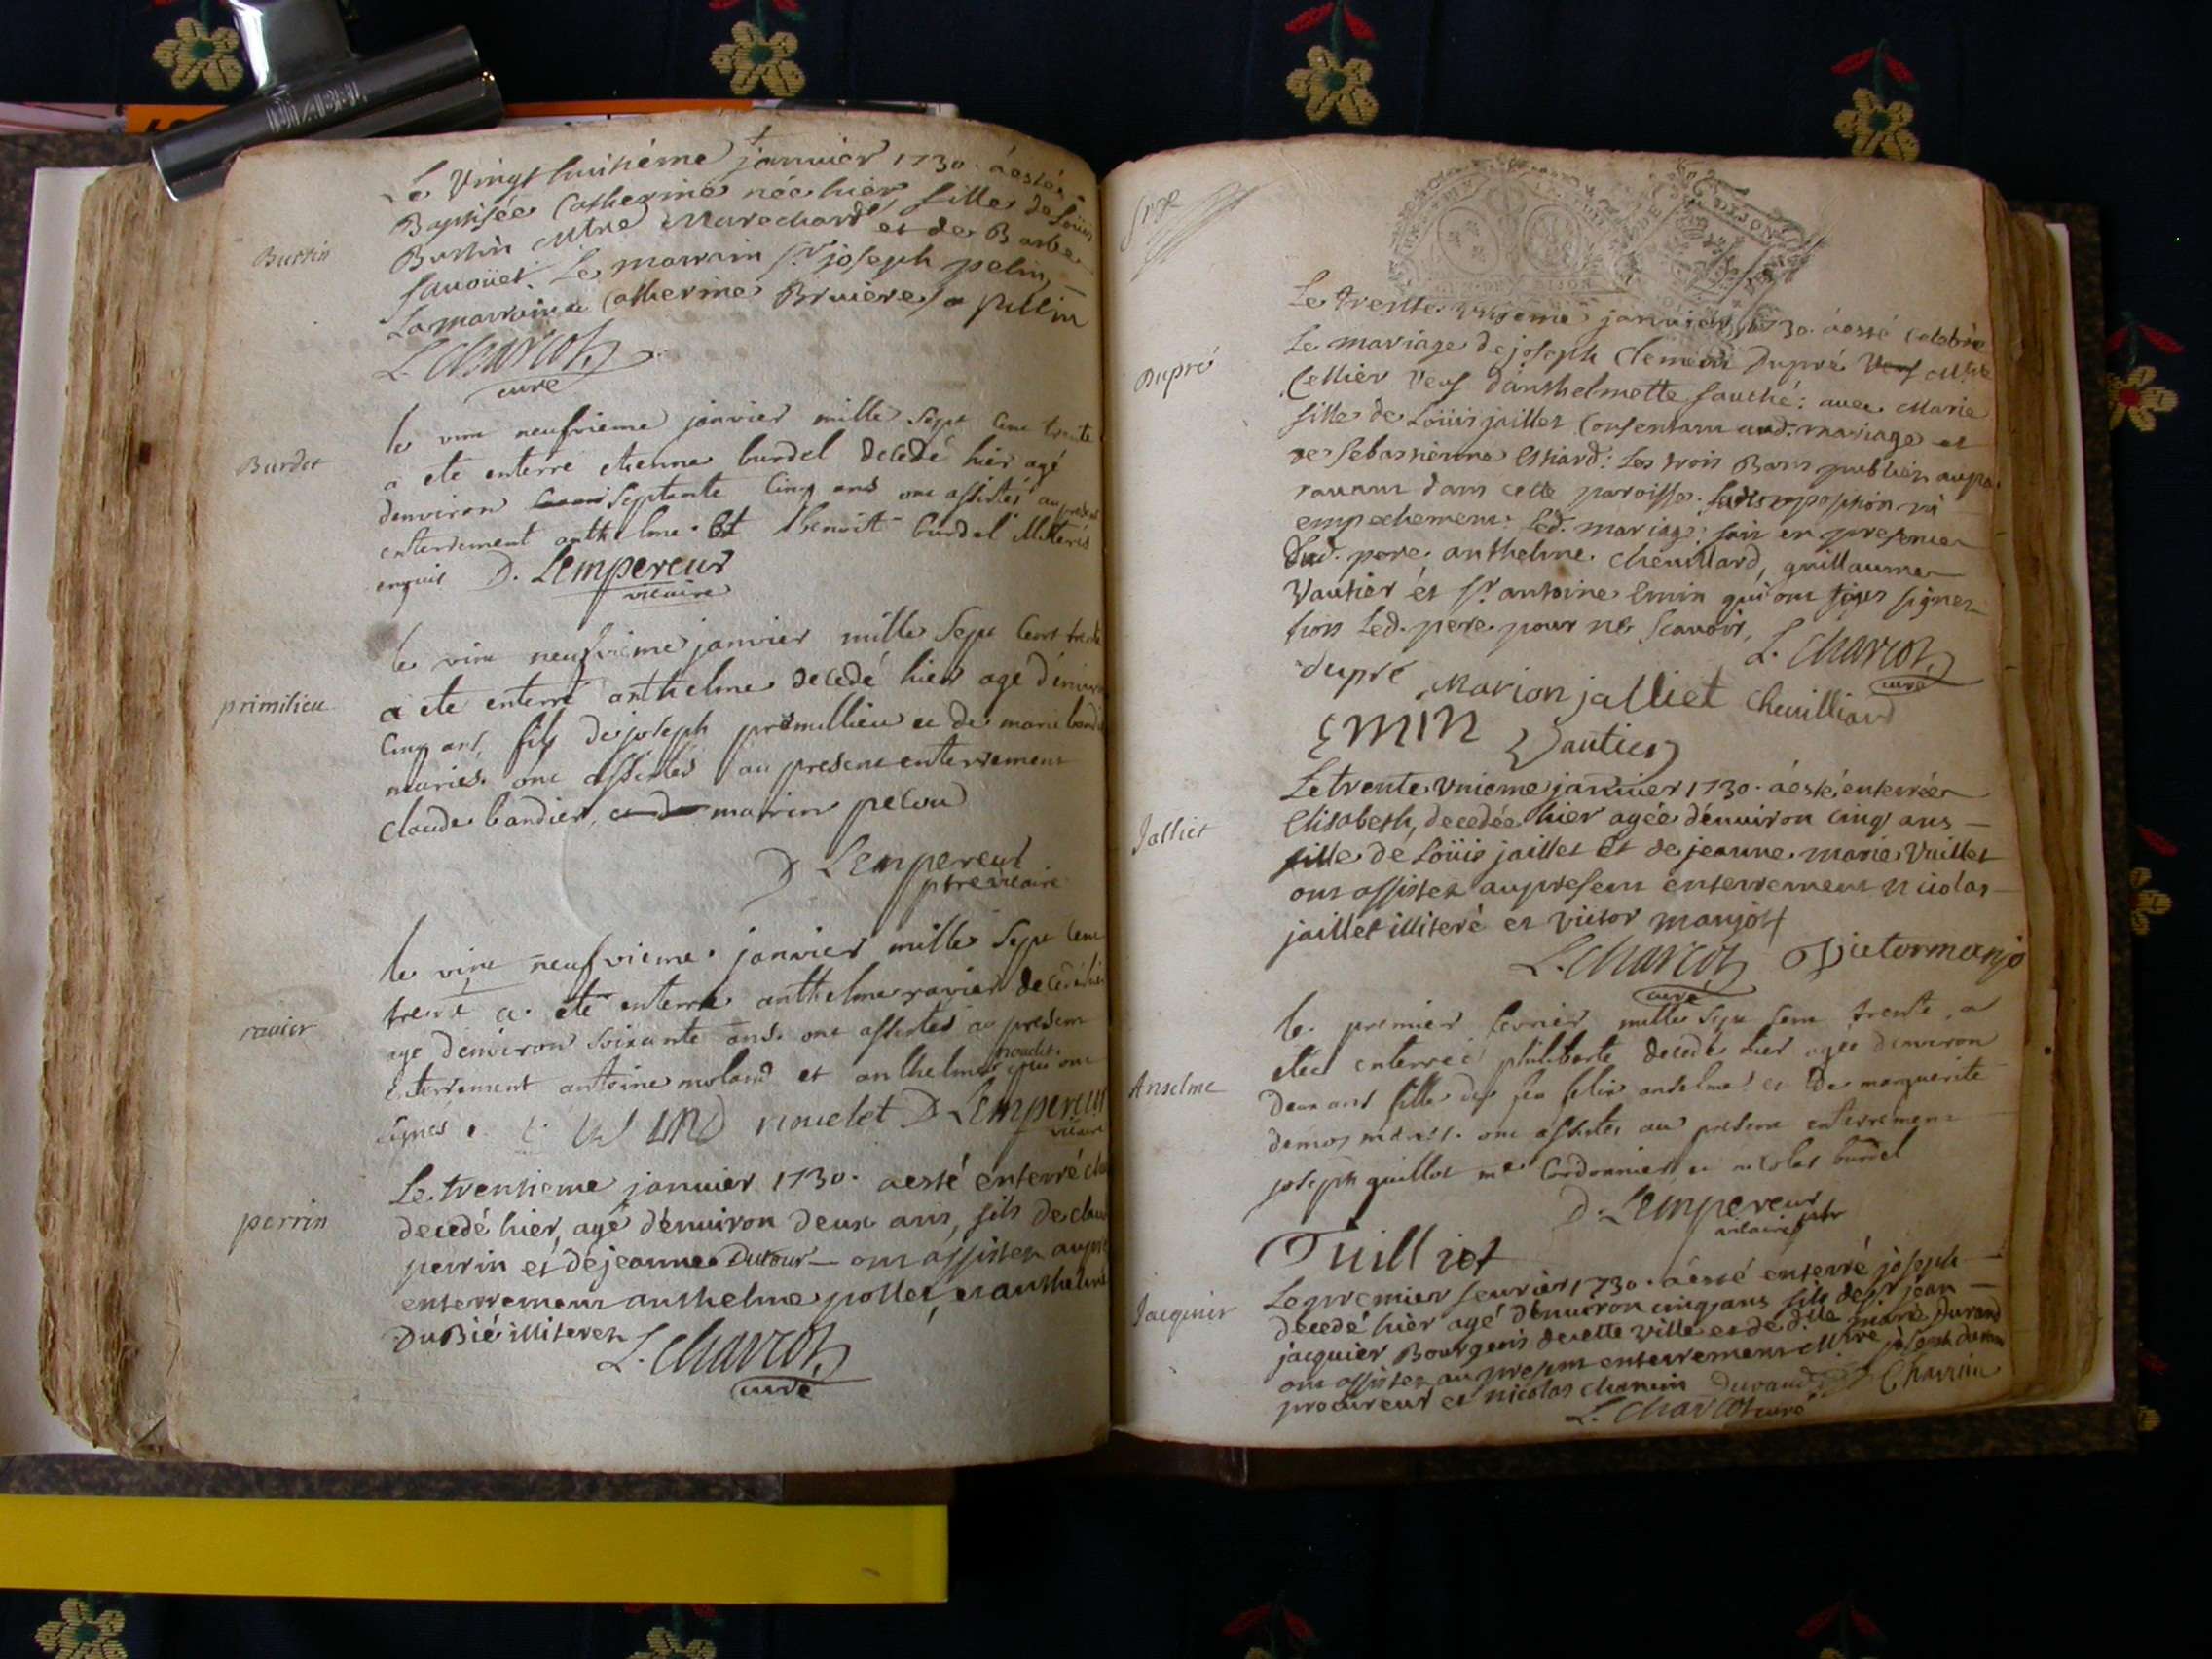 Le Vingt huitiéme janvier 1730. á esté
Baptisée Catherine née hier, fille de Loüis
Burtin
Burtin Mtre Marechard et de Barbe
Sauoüet. Le parrain Sr. joseph pelin,
La marraine Catherine Bruiere
L. Charcot
curé
le vint neufvieme janvier mille sept cent trente
Burdet
a ete enterré etienne burdel decedé hier agé
denviron septante cinq ans ont assistés au present
enterrement anthelme et benoit burdel illiterés
enquis D. Lempereur
vicaire
le vint neufvieme janvier mille sept cent trente
primilieu
a ete enterré anthelme decedé hier agé d'environ
cinq ans, fils de joseph premillieu et de marie bandier
mariés. ont assistés au present enterrement
claude bandier, marin peloud
D Lempereur
ptre vicaire
le vint neufvieme. janvier mille sept cent
trente a. eté enterré anthelme ravier decedé hier
ravier
agé denviron soixante ans. ont assistés au present
enterrement antoine moland et anthelme noudet qui ont
signés. D Lempereur
vicaire
Le trentieme janvier 1730. a esté enterré
perrin
decedé hier, agé dénuiron deux ans, fils de claude
perrin et de jeanne Dufour — ont assistez au pre
enterrement anthelme pollet, et anthelme
DuBié illiterez L. Charcot
curé
DIJON
Le trente unieme janvier 1730. á esté celebré
Dupré
Le mariage de joseph Clement Dupré Mtre
Cellier veuf d'anthelmette sauché: auec Marie
fille de Loüis jaillet Consentant aud. mariage et
de Sebastienne Essiard: Les trois Bans publiés aupa
rauant dans cette paroisse. sans opposition ni
empechement. Led. mariage: fait en presence
dud. pere. anthelme. cheuillard, guillaume
Vautier et Sr. antoine Emin qui ont tous signez
sion Led. pere pour ne scauoir, L. Charcot
curé
dupré Marion jalliet Cheuilliard
Emin Vautier
Le trente Vnieme janvier 1730. á esté enterrée
Jalliet
Elisabeth, decedée hier agée dénuiron cinq ans —
fille de Loüis jaillet Et de jeanne. marie Vuillet
ont assistez au present enterrement nicolas —
jaillet illiteré et victor manjot
L. Charcot Victormanjo
curé
le. premier fevrier mille sept sent trente. a
eteé enterreé philiberte decedé hier agée denviron
Anselme
deux ans fille de feu felix anselme et de marguerite
mariés. ont assistés au present enterrement
joseph guillot me Cordonnier et nicolas burdel
D. Lempereur
vicaire
Tuilliet
Le premier feurier 1730. á esté enterré joseph —
Jacquier
decedé hier agé dénuiron cinq ans fils de Sr jean —
jacquier Bourgeois de cette ville et de dlle marie Durand
ont assistez au present enterrement Mtre joseph durand
procureur et nicolas charuin Durand Charuin
L. Charcot curé